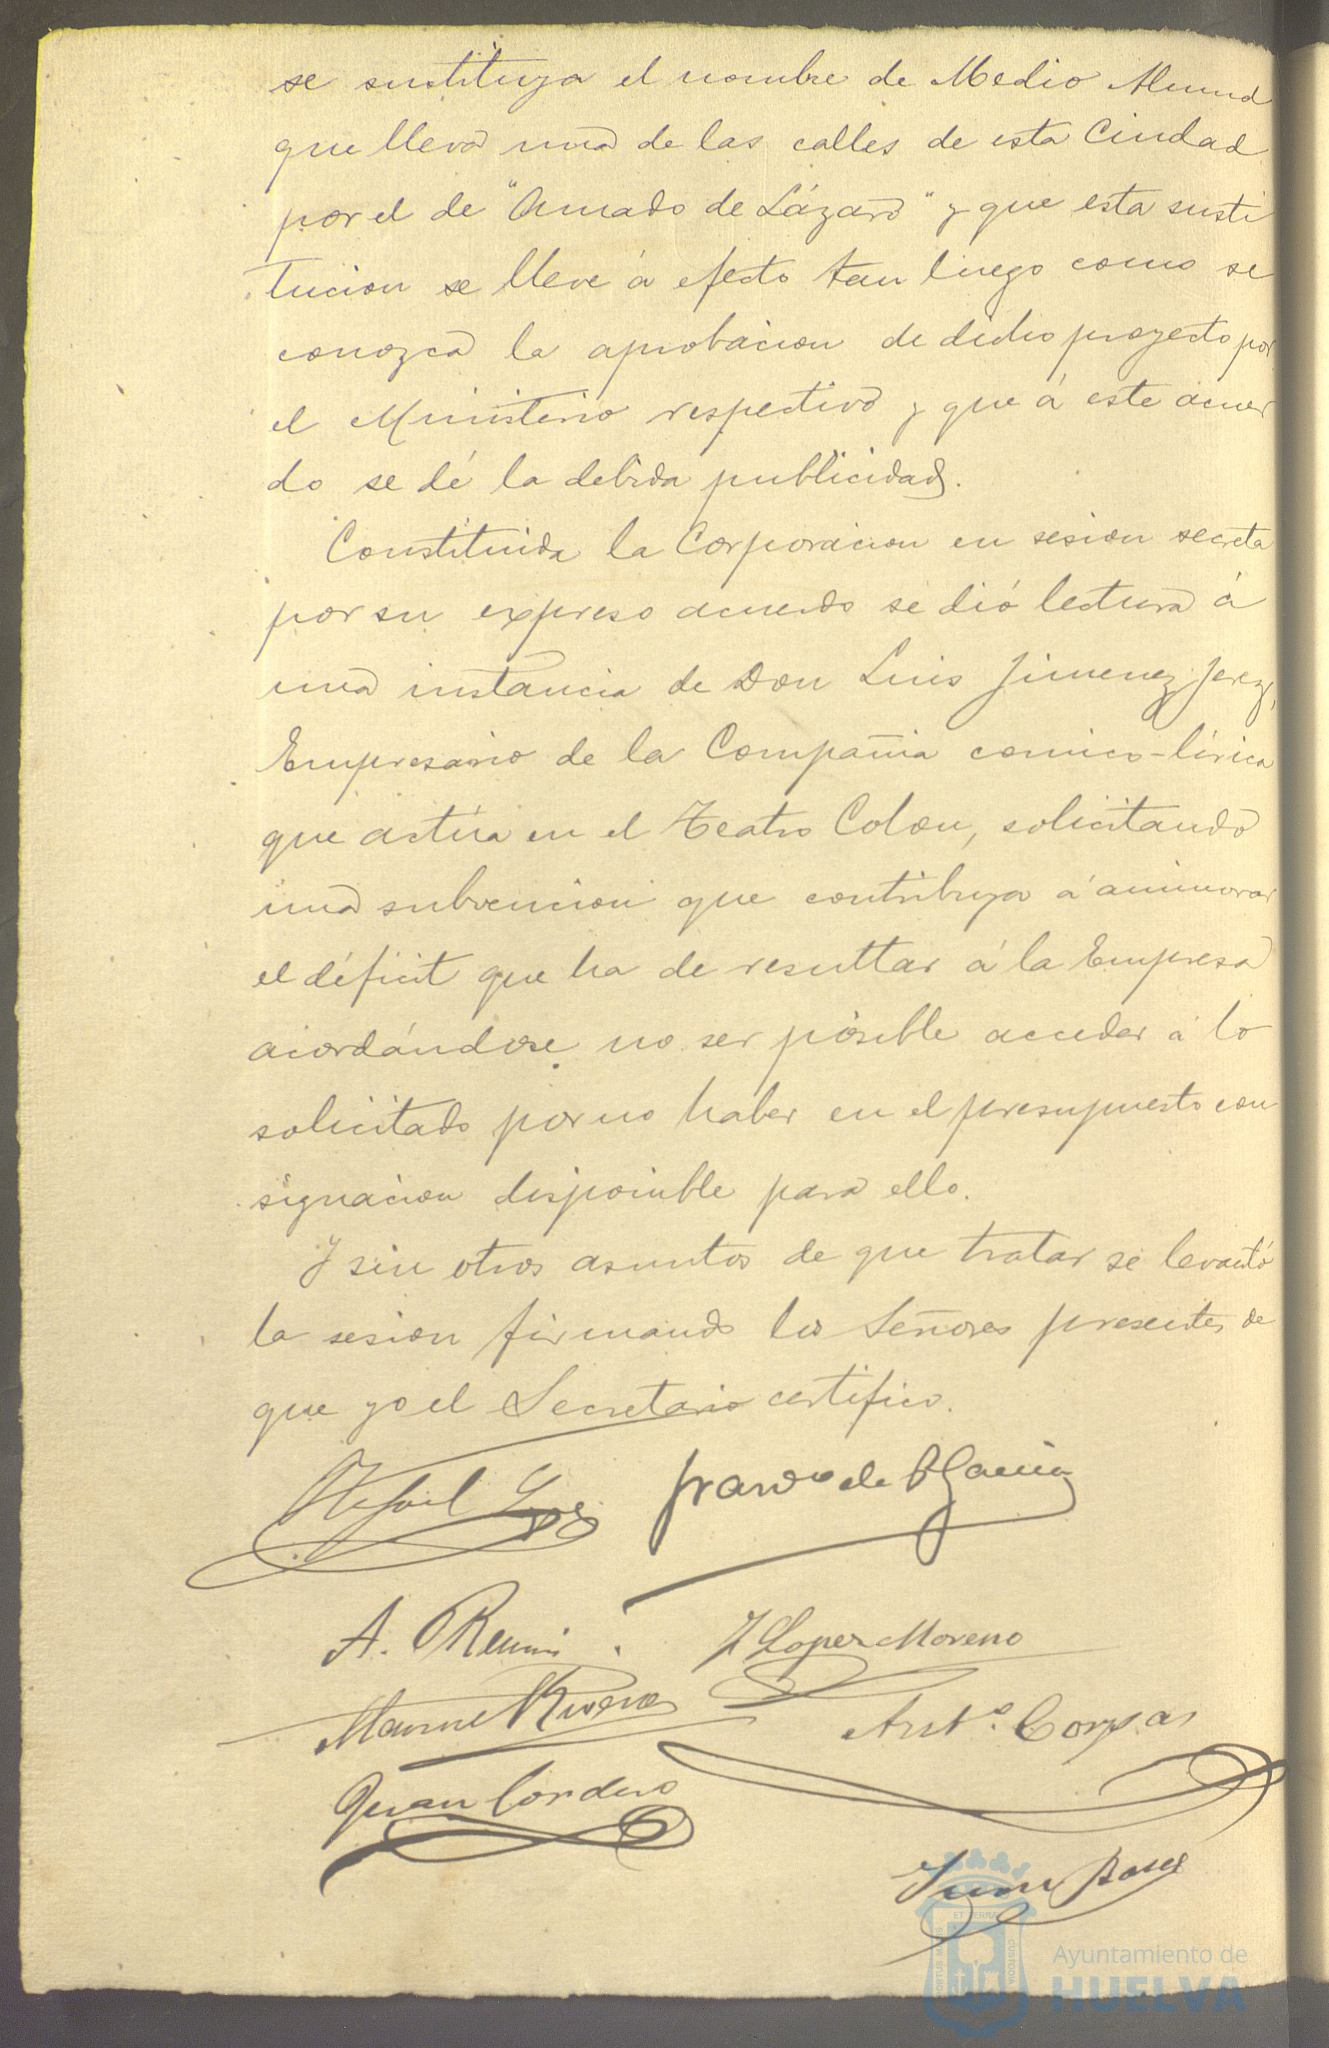 se sustituya el nombre de Medio Almud
que lleva una de las calles de esta Ciudad
por el de "Amado de Lázaro" y que esta susti
tucion se lleve á efecto tan luego como se
conozca la aprobacion de dicho proyecto por
el Ministerio respectivo y que á este acuer
do se dé la debida publicidad.
Constituida la Corporacion en sesion secreta
por su expreso acuerdo se dió lectura á
una instancia de Don Luis Jimenez Jerez,
Empresario de la Compañia comico-lírica
que actúa en el Teatro Colon, solicitando
una subvencion que contribuya á aminorar
el déficit que ha de resultar á la Empresa
acordándose no ser posible acceder á lo
solicitado por no haber en el presupuesto con
signacion disponible para ello.
Y sin otros asuntos de que tratar se levantó
la sesion firmando los Señores presentes de
que yo el Secretario certifico.
Franco de P Garcia
A.
J Lopez Moreno
Manuel Rivera
Anto. Corpas
Juan Cordero
Juan
Ayuntamiento de
HUELVA